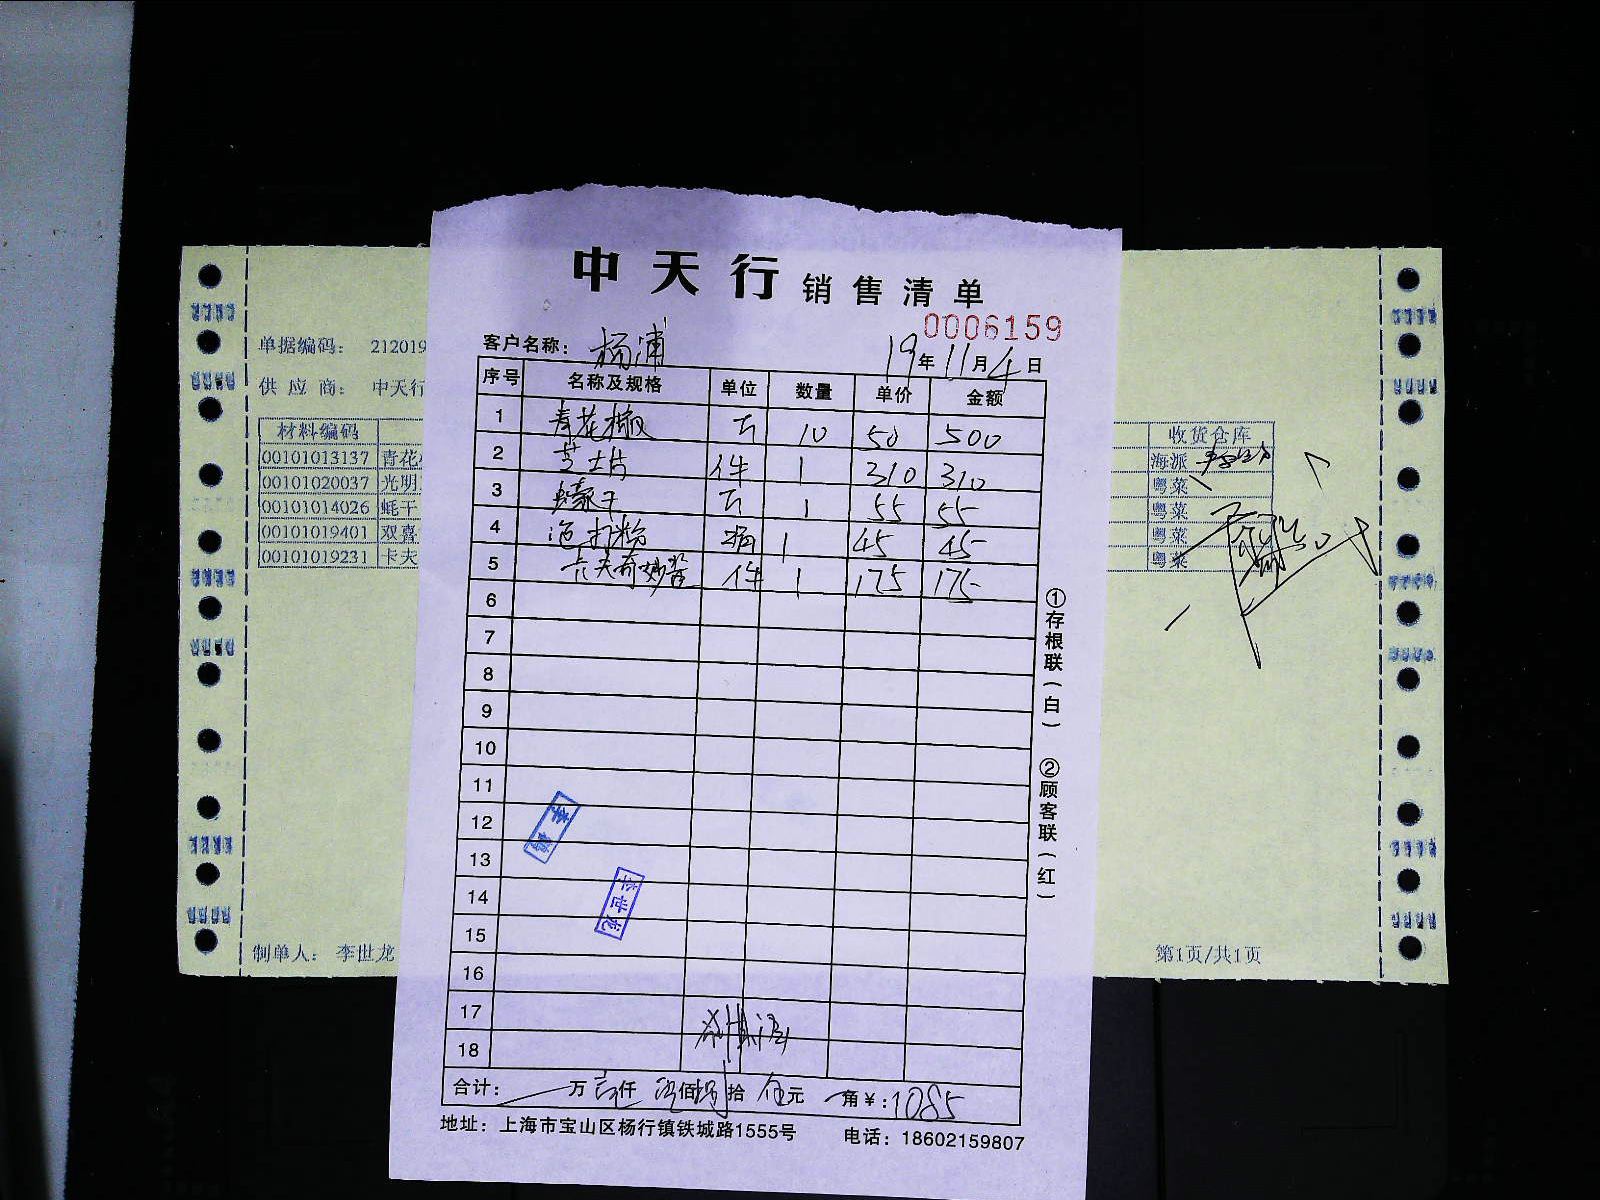 中天行 销售清单
0006159
客户名称： 杨浦 19年11月4日
序号 名称及规格 单位 数量 单价 金额
1 青花椒 斤 10 50 500
2 芝士片 件 1 310 310
3 蠔干 斤 1 55 55
4 泡打粉 瓶 1 45 45
5 卡夫奇妙酱 件 1 175 175
6
7
8
9
10
11
12
13
14
15
16
17
18
合计： 万 仟 佰 拾 伍元 角¥：1085
地址：上海市宝山区杨行镇铁城路1555号 电话：18602159807
①存根联（白） ②顾客联（红）
李世龙
单据编码： 212019
供应商： 中天行
材料编码 收货仓库
00101013137 青花 海派
00101020037 光明 粤菜
00101014026 蚝干 粤菜
00101019401 双喜 粤菜
00101019231 卡夫 粤菜
制单人： 李世龙 第1页/共1页